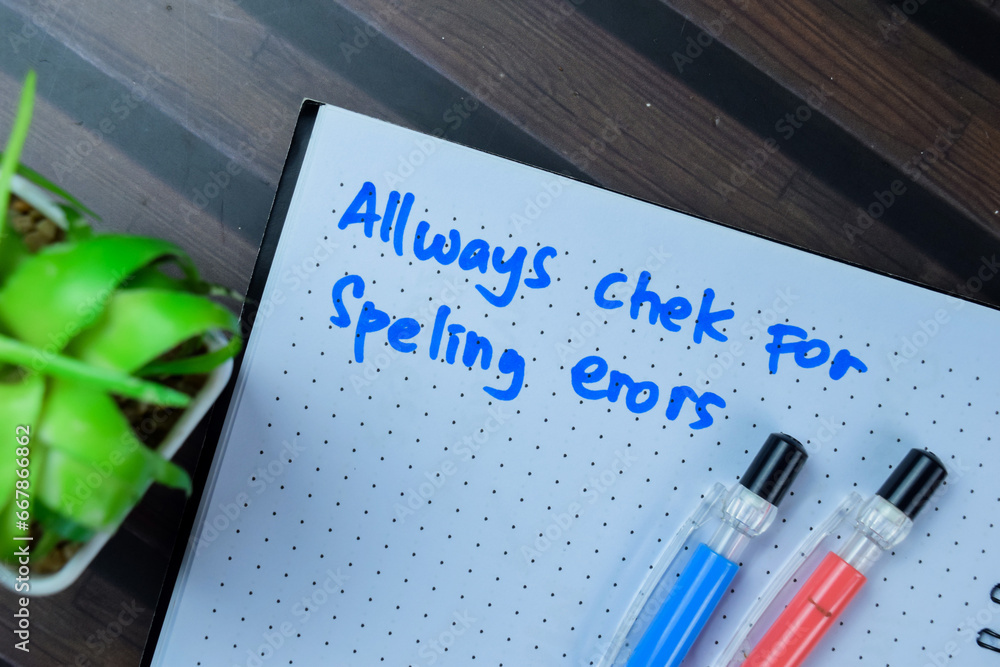 Allways chek For
Speling erors
Adobe Stock | #667866862